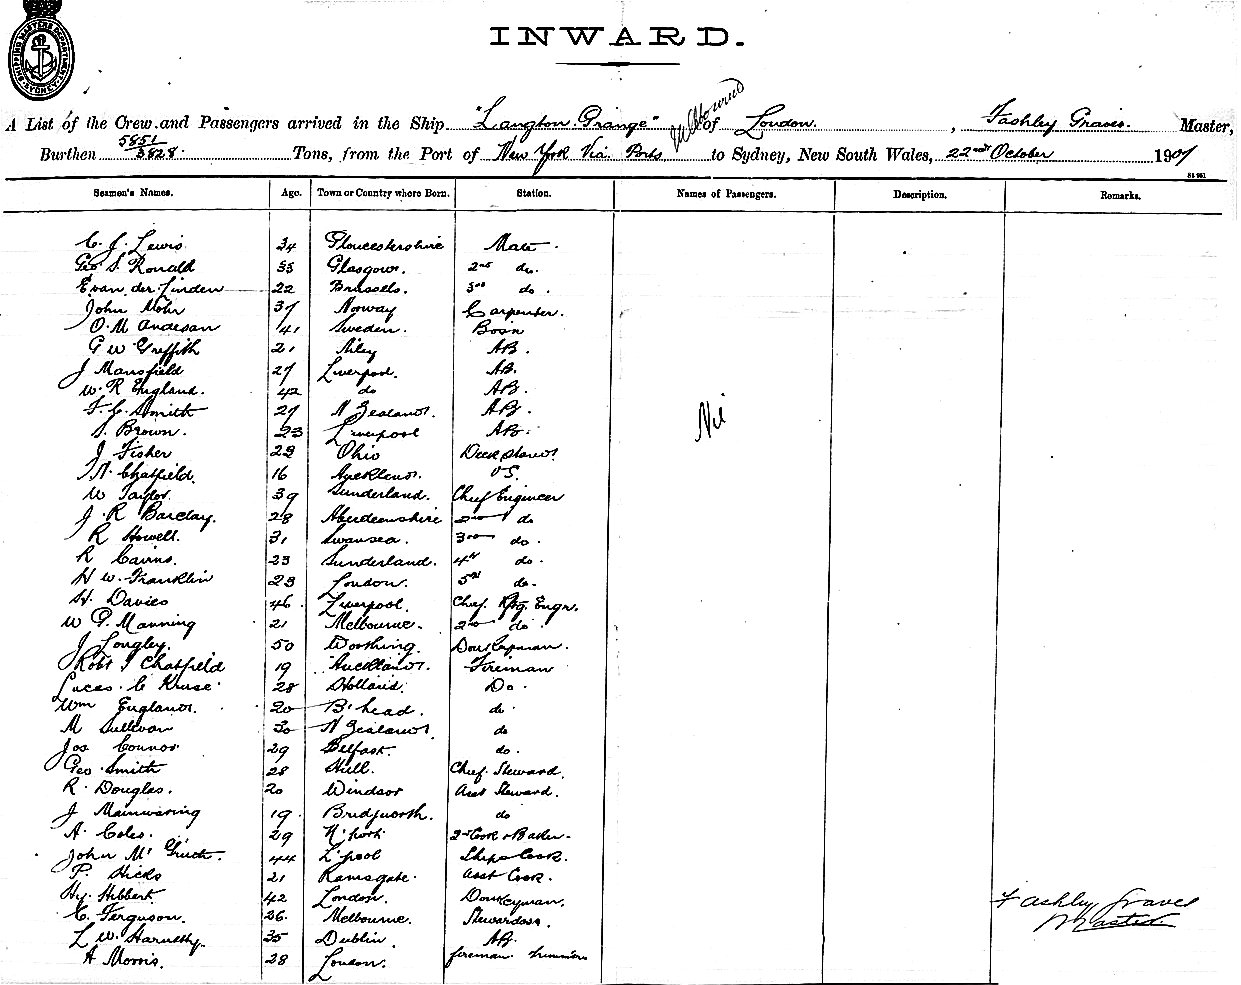 SHIPPING MASTERS DEPARTMENT SYDNEY
INWARD.
A List of the Crew and Passengers arrived in the Ship "Langton Grange" of London, Fashley Graves Master,
Melbourne
Burthen 5851/3828 Tons, from the Port of New York Via Ports to Sydney, New South Wales, 22nd October 1907
Seamen's Names. Age. Town or Country where Born. Station. Names of Passengers. Description. Remarks.
C. J. Lewis 34 Gloucestershire Mate.
Geo S. Ronald 33 Glasgow. 2nd do.
E van der Linden 22 Brussels. 3rd do.
John Mohr 37 Norway Carpenter.
O. M Andesan 41 Sweden. Bosn
G W Griffith 21 AB.
J Mansfield 27 Liverpool. AB.
W. R England. 42 do AB.
F. C. Smith 27 N Zealand. AB.
S. Brown. 23 Liverpool AB.
Nil
J Fisher 29 Ohio
N. Chatfield. 16 Auckland. OS.
W Taylor. 39 Sunderland. Chief Engineer
J. R Barclay. 28 Aberdeenshire 2nd do
R Howell. 31 Swansea. 3rd do.
R Cairns. 23 Sunderland. 4th do.
H W. Franklin 23 London. 5th do.
H. Davies 46 Liverpool. Chief Rfg. Engr.
W G. Manning 21 Melbourne. 2nd do.
J Longley. 50 Worthing. Donkeyman.
Robt J Chatfield 19 Auckland. Fireman
Lucas. C Kruse 28 Holland. Do.
Wm England. 20 B'head. do.
M Sullivan 30 N Zealand do
Jos Connor 29 Belfast. do.
Geo Smith 28 Hull. Chief Steward.
R. Douglas. 20 Windsor Asst Steward.
J Mainwaring 19. Bridgworth. do
A. Coles. 29 N'port 2nd Cook & Baker.
John Mc 44 L'pool Ships Cook.
P. Hicks 21 Ramsgate. Asst Cook.
Hy. Hibbert 42 London. Donkeyman.
Fashley Graves
C. Ferguson. 26. Melbourne. Stewardess.
Master
L W. 35 Dublin. AB.
A Morris. 28 London. Fireman Trimmer